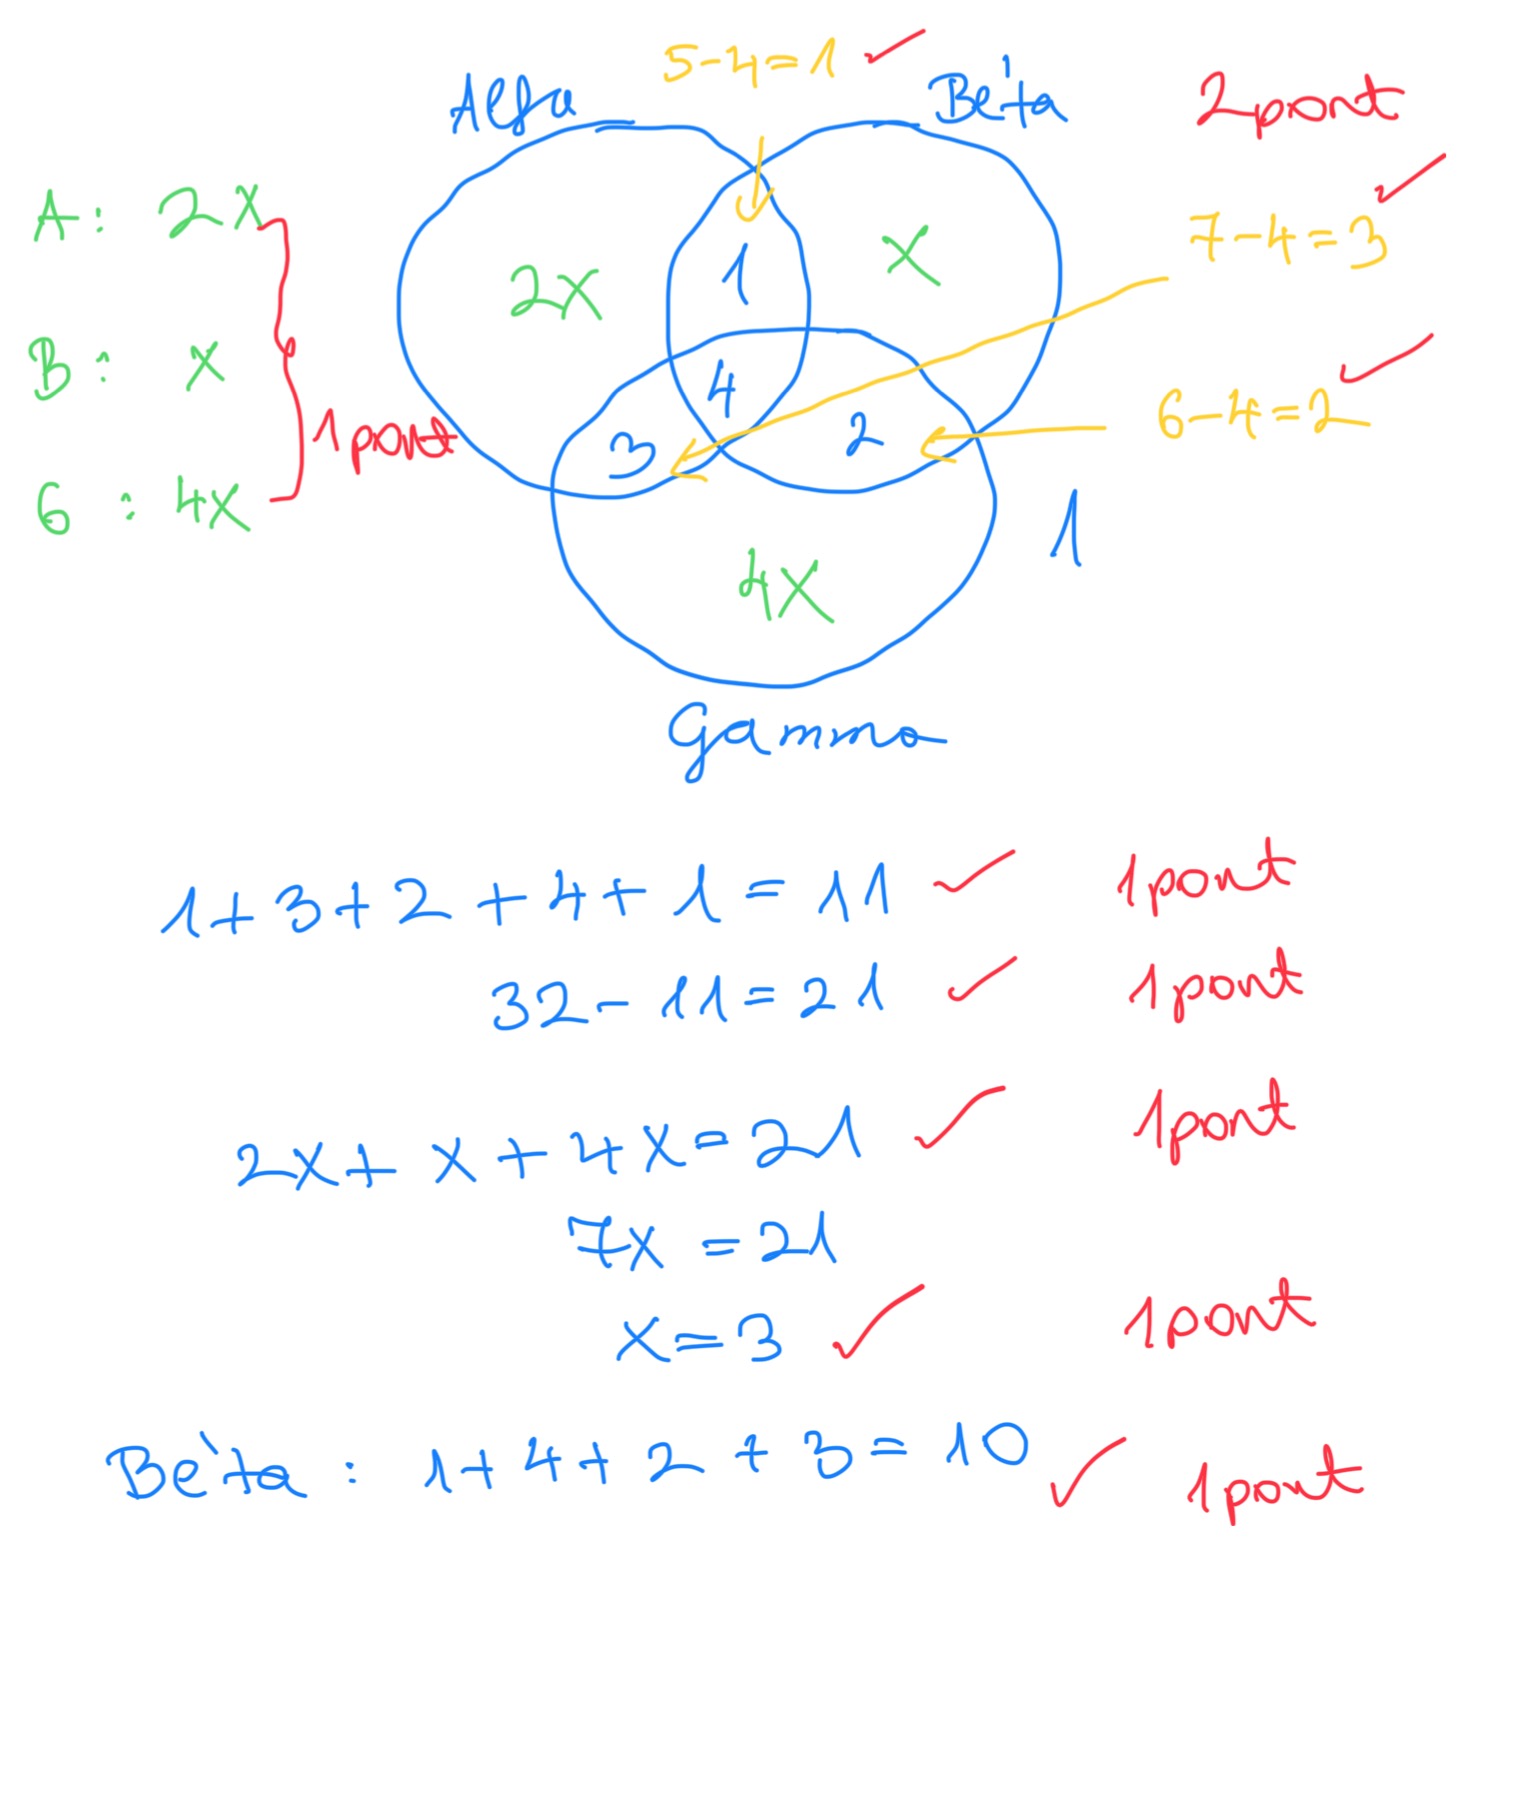 5-4=1
Alfa
Béta
2pont
A: 2x
2x
1
x
7-4=3
B: x
4
3
2
6-4=2
1pont
6: 4x
4x
1
Gamma
1+3+2+4+1=11 1pont
32-11=21 1pont
2x+x+4x=21 1pont
7x=21
x=3 1pont
Béta: 1+4+2+3=10 1pont